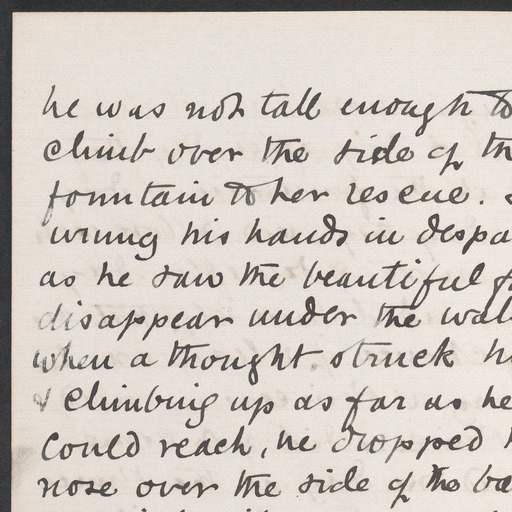 he was not tall enough to
climb over the side of the
fountain to her rescue.
wrung his hands in despa
as he saw the beautiful
disappear under the wat
when a thought struck h
& climbing up as far as he
could reach, he dropped h
nose over the side of the ba